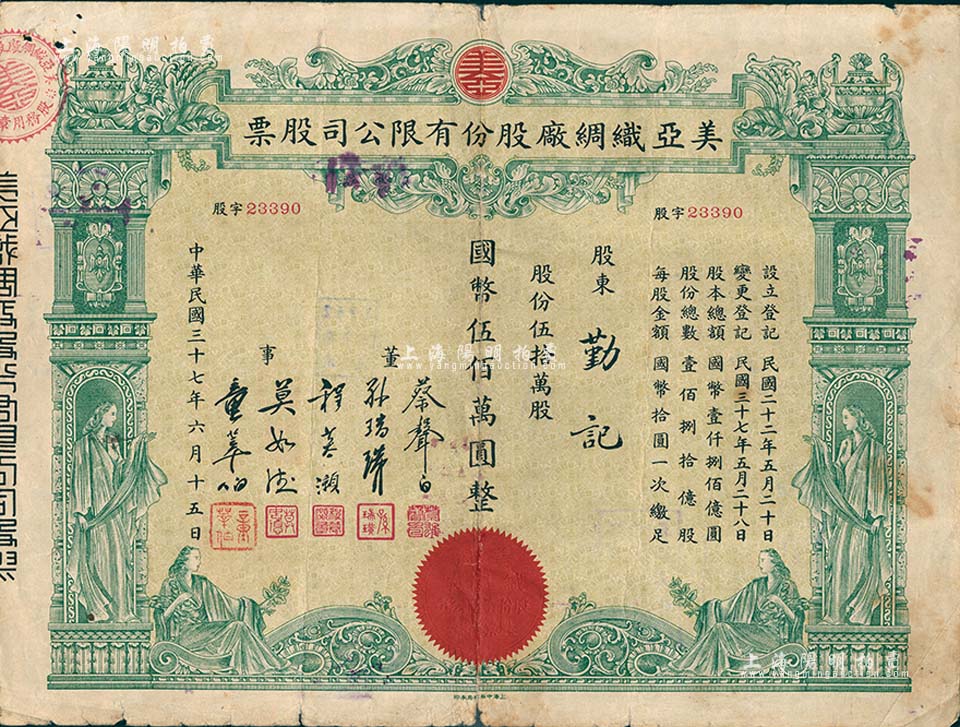 上海陽明拍賣
美亞織綢廠股份有限公司股票
股字23390
股字23390
設立登記 民國二十二年五月二十日
變更登記 民國三十七年五月二十八日
股本總額 國幣壹仟捌佰億圓
股份總數 壹佰捌拾億股
每股金額 國幣拾圓一次繳足
股東 勤記
股份伍拾萬股
國幣伍佰萬圓整
董事
蔡聲白
孫瑞璜
程英灝
莫如德
童莘伯
中華民國三十七年六月十五日
上海陽明拍賣
www.yangmingauction.com
上海陽明拍賣
www.yangmingauction.com